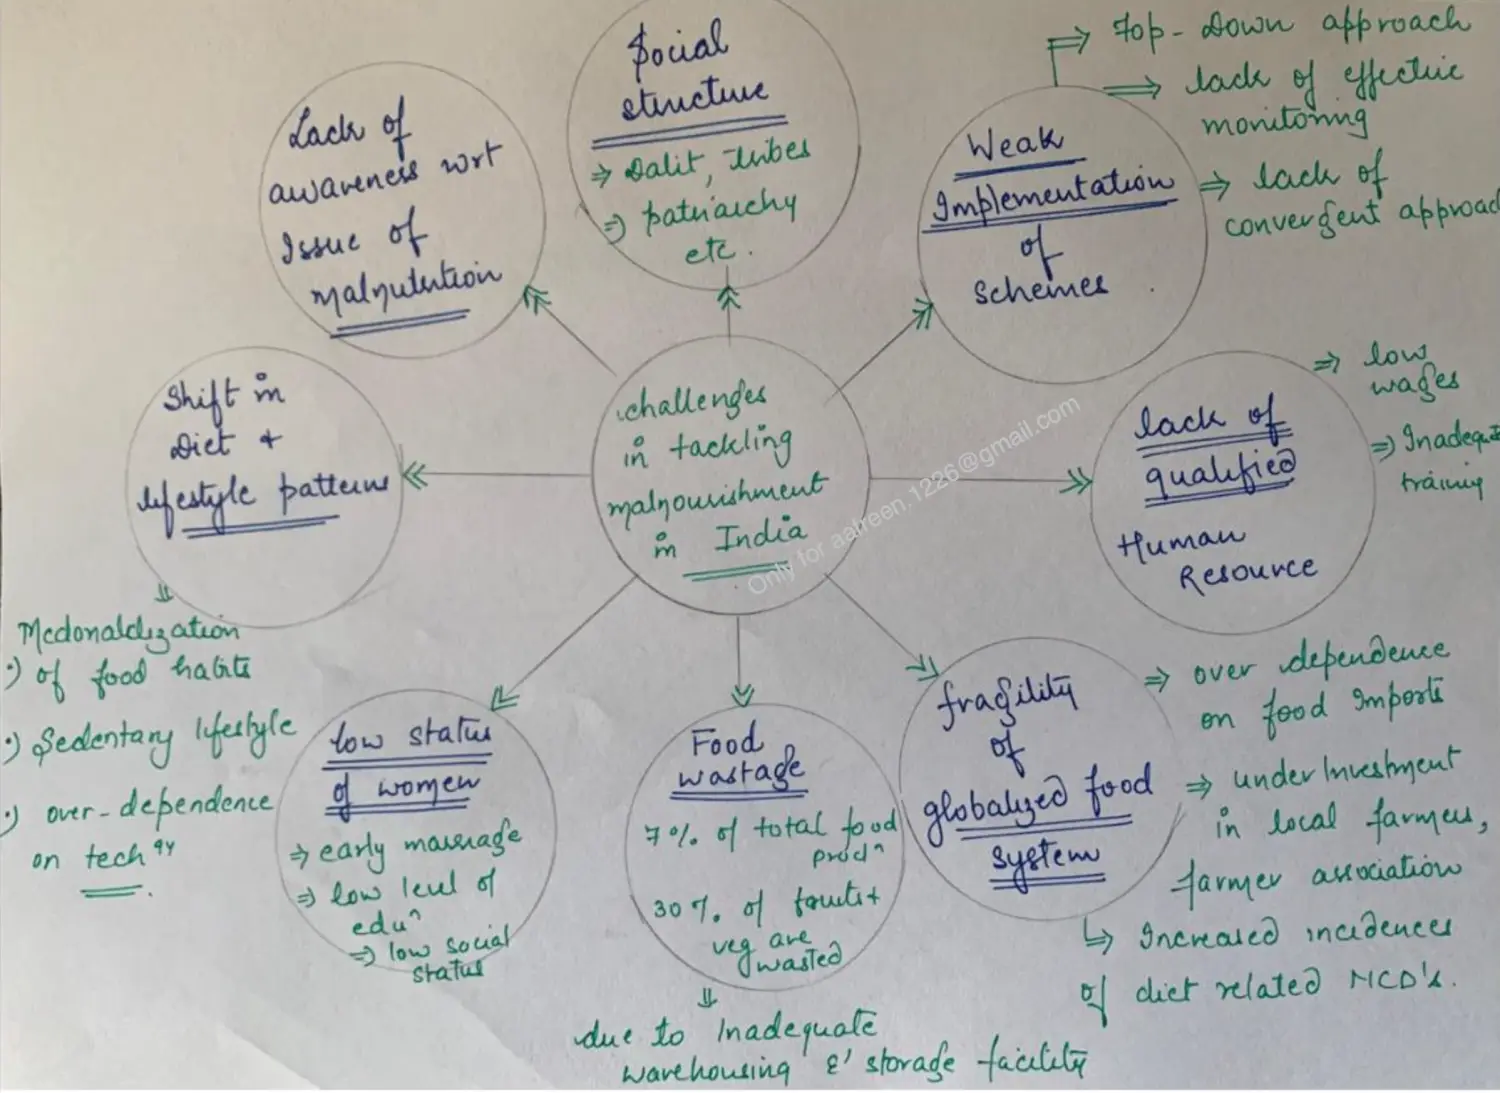 Social
structure
⇒ Dalit, tribes
⇒ patriarchy
etc.
Lack of
awareness wrt
Issue of
malnutrition
Weak
Implementation
of
schemes
⇒ Top-Down approach
⇒ lack of effective
monitoring
⇒ lack of
convergent approac
challenges
in tackling
malnourishment
in India
Shift in
Diet +
lifestyle patterns
⇓
Mcdonaldization
·) of food habits
·) Sedentary lifestyle
·) over-dependence
on tech gy
lack of
qualified
Human
Resource
⇒ low
wages
⇒ Inadequ
training
low status
of women
⇒ early marriage
⇒ low level of
edu^n
⇒ low social
status
Food
wastage
7% of total food
prod^n
30% of fruits +
veg are
wasted
⇓
due to Inadequate
warehousing & storage facility
fragility
of
globalized food
system
⇒ over dependence
on food Imports
⇒ underInvestment
in local farmers,
farmer association
↳ Increased incidences
of diet related NCD's.
Only for aafreen.1226@gmail.com